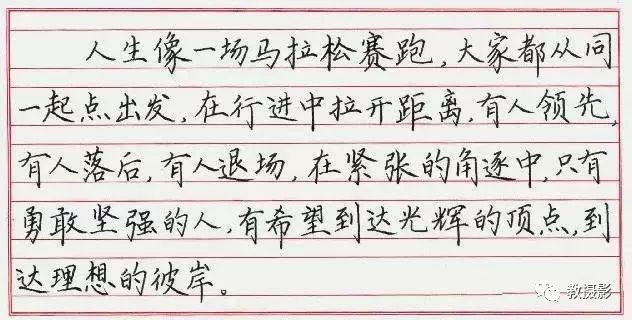 人生像一场马拉松赛跑,大家都从同
一起点出发,在行进中拉开距离,有人领先,
有人落后,有人退场,在紧张的角逐中,只有
勇敢坚强的人,有希望到达光辉的顶点,到
达理想的彼岸。
一教摄影